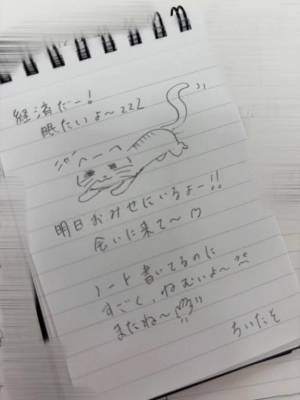 経済だー!
眠たいよ〜zzz
明日おみせにいるよー!!
会いに来て〜♡
ノート書いてるのに
すごく、ねむいよ〜
またね〜
ちいたそ